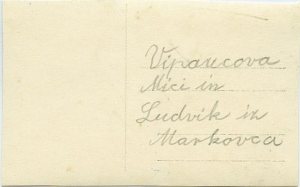 Vipaucova
Mici in
Ludvik iz
Markovca